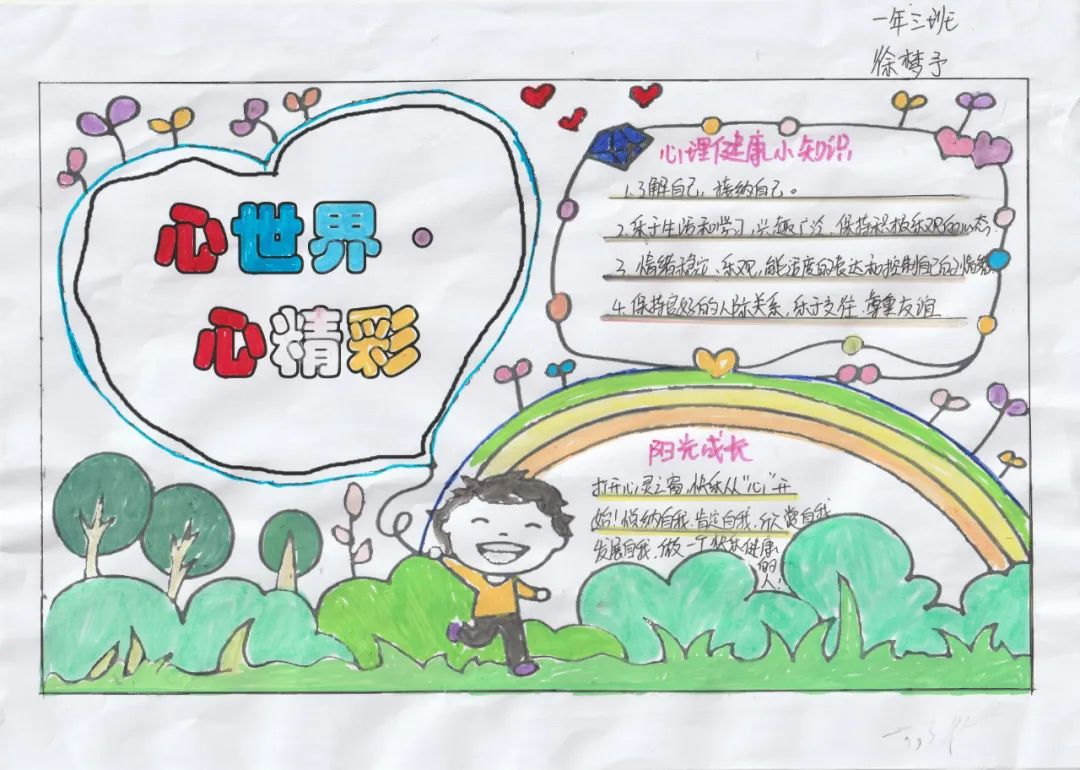 一年三班
徐梦予
心世界
心精彩
心理健康小知识
1.了解自己，接纳自己。
2.乐于生活和学习，兴趣广泛、保持积极乐观的心态
3.情绪稳定、乐观，能适度的表达和控制自己的情绪
4.保持良好的人际关系，乐于交往，尊重友谊
阳光成长
打开心灵之窗，快乐从“心”开
始！悦纳自我，肯定自我，欣赏自我
发展自我，做一个快乐健康
的
人！